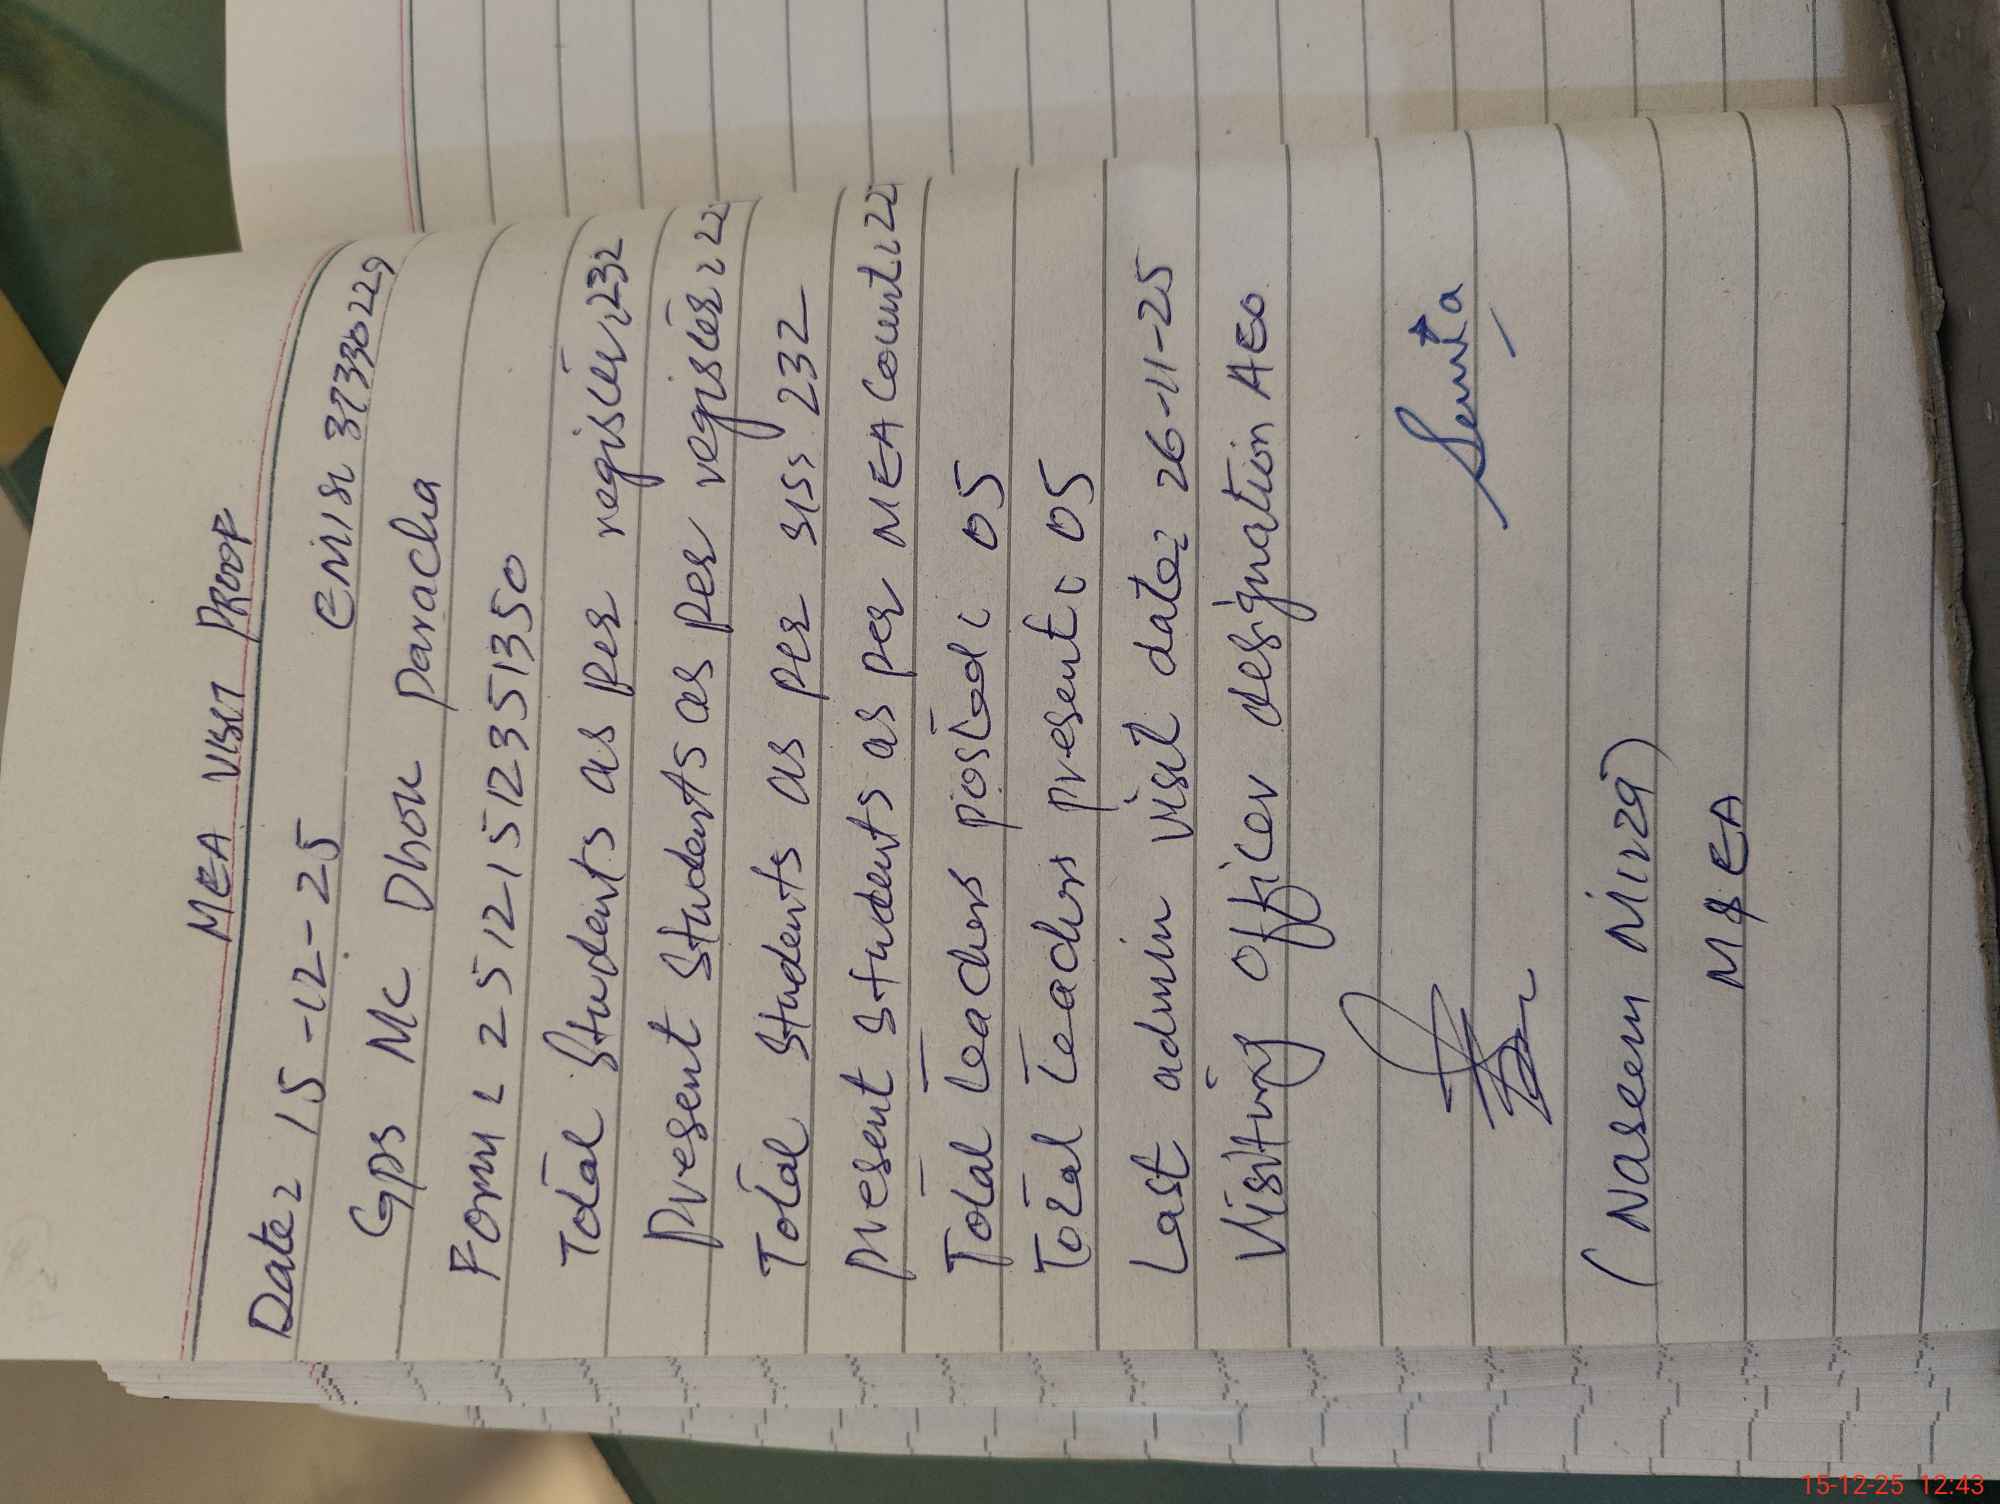 MEA VISIT PROOF
Date: 15-12-25 EMIS: 37330229
GPS MC Dhok Paracha
Form: 25121512351350
Total Students as per register: 232
Present Students as per register: 22
Total Students as per SIS: 232
Present Students as per MEA Count: 22
Total teachers posted: 05
Total teachers present: 05
Last admin visit date: 26-11-25
Visiting officer designation AEO
(Naseem Mirza)
M&EA
15-12-25 12:43